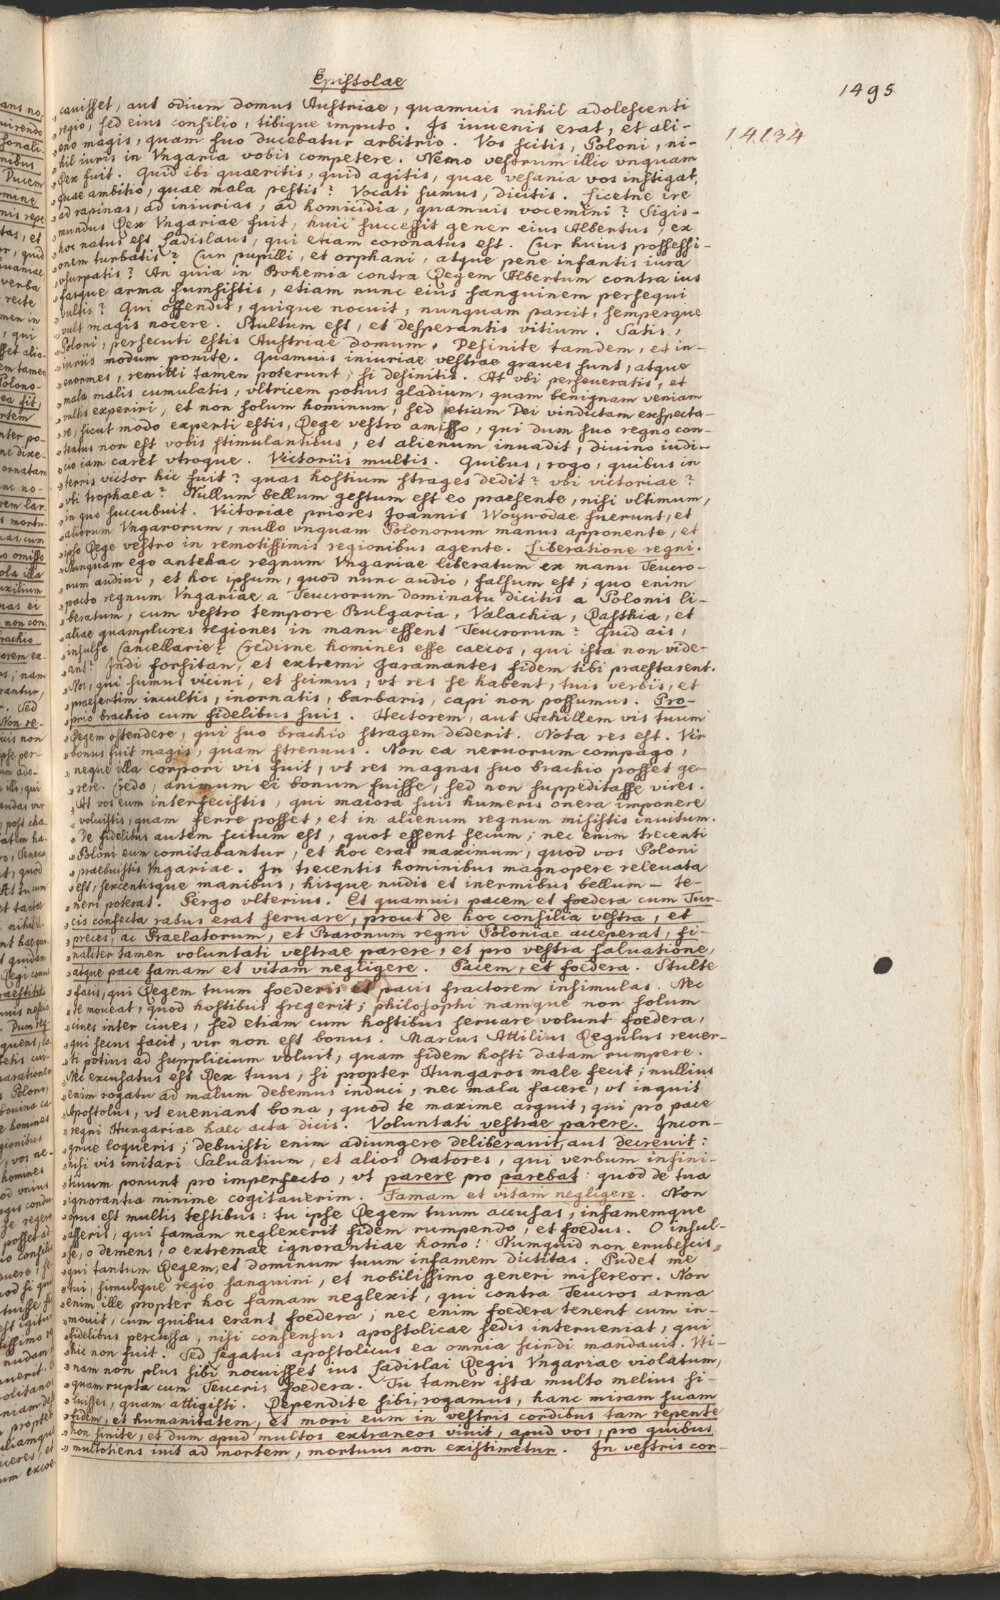 Epistolae
1495
14134
cauisset, aut odium domus Austriae, quamuis nihil adolescenti
regio, sed eius consilio, tibique imputo. Is iuuenis erat, et ali-
eno magis, quam suo ducebatur arbitrio. Vos scitis, Poloni, ni-
hil iuris in Vngaria vobis competere. Nemo vestrum illic vnquam
Rex fuit. Quid ibi quaeritis, quid agitis, quae vesania vos instigat,
quae ambitio, quae mala pestis? Vocati sumus, dicitis. Licetne ire
ad rapinas, ad iniurias, ad homicidia, quamuis vocemini? Sigis-
mundus Rex Vngariae fuit, huic successit gener eius Albertus, ex
hoc natus est Ladislaus, qui etiam coronatus est. Cur huius possessi-
onem turbatis? Cur pupilli, et orphani, atque pene infantis iura
vsurpatis? An quia in Bohemia contra Regem Albertum contra ius
fasque arma sumsistis, etiam nunc eius sanguinem persequi
vultis? Qui offendit, quique nocuit, nunquam parcit, semperque
vult magis nocere. Stultum est, et desperantis vitium. Satis,
Poloni, persecuti estis Austriae domum. Desinite tamdem, et in-
iuriis modum ponite. Quamuis iniuriae vestrae graues sunt, atque
enormes, remitti tamen poterunt, si desinitis. At vbi perseueratis, et
mala malis cumulatis, vltricem potius gladium, quam benignam veniam
vultis experiri, et non solum hominum, sed etiam Dei vindictam exspecta-
re, sicut modo experti estis, Rege vestro amisso, qui dum suo regno con-
tentus non est vobis stimulantibus, et alienum inuadit, diuino iudi-
cio iam caret vtroque. Victoriis multis. Quibus, rogo, quibus in
terris victor hic fuit? quas hostium strages dedit? vbi victoriae?
vbi trophaea? Nullum bellum gestum est eo praesente, nisi vltimum,
in quo succubuit. Victoriae priores Joannis Woywodae fuerunt, et
aliorum Vngarorum, nullo vnquam Polonorum manus apponente, et
ipso Rege vestro in remotissimis regionibus agente. Liberatione regni.
Nunquam ego antehac regnum Vngariae liberatum ex manu Teucro-
rum audiui, et hoc ipsum, quod nunc audio, falsum est; quo enim
pacto regnum Vngariae a Teucrorum dominatu dicitis a Polonis li-
beratum, cum vestro tempore Bulgaria, Valachia, Rasthia, et
aliae quamplures regiones in manu essent Teucrorum? Quid ais,
insulse Cancellarie? Credisne homines esse caecos, qui ista non vide-
ant? Indi forsitan, et extremi Garamantes fidem tibi praestarent.
Nos, qui sumus vicini, et scimus, vt res se habent, tuis verbis, et
praesertim incultis, inornatis, barbaris, capi non possumus. Pro-
prio brachio cum fidelibus suis. Hectorem, aut Achillem vis tuum
Regem ostendere, qui suo brachio stragem dederit. Nota res est. Vir
bonus fuit magis, quam strenuus. Non ea neruorum compago,
neque illa corpori vis fuit, vt res magnas suo brachio posset ge-
rere. Credo, animum ei bonum fuisse, sed non suppeditasse vires.
At vos eum interfecistis, qui maiora suis humeris onera imponere
voluistis, quam ferre posset, et in alienum regnum misistis inuitum.
De fidelibus autem scitum est, quot essent secum; nec enim trecenti
Poloni eum comitabantur, et hoc erat maximum, quod vos Poloni
praebuistis Vngariae. In trecentis hominibus magnopere releuata
est, sexcentisque manibus, hisque nudis et inermibus bellum te-
neri poterat. Pergo vlterius. Et quamuis pacem et foedera cum Tur-
cis confecta ratus erat seruare, prout de hoc consilia vestra, et
preces, ac Praelatorum, et Baronum regni Poloniae acceperat, fi-
naliter tamen voluntati vestrae parere, et pro vestra saluatione,
atque pace famam et vitam negligere. Pacem, et foedera. Stulte
facis, qui Regem tuum foederis et pacis fractorem insimulas. Nec
te moueat, quod hostibus fregerit; philosophi namque non solum
ciues inter ciues, sed etiam cum hostibus seruare volunt foedera,
qui secus facit, vir non est bonus. Marcus Attilius Regulus reuer-
ti potius ad supplicium voluit, quam fidem hosti datam rumpere.
Nec excusatus est Rex tuus, si propter Hungaros male fecit; nullius
enim rogatu ad malum debemus induci, nec mala facere, vt inquit
Apostolus, vt eueniant bona, quod te maxime arguit, qui pro pace
regni Hungariae haec acta dicis. Voluntati vestrae parere. Incon-
grue loqueris; debuisti enim adiungere deliberauit, aut decreuit:
nisi vis imitari Salustium, et alios Oratores, qui verbum infini-
tiuum ponunt pro imperfecto, vt parere pro parebat: quod de tua
ignorantia minime cogitauerim. Famam et vitam negligere. Non
opus est multis testibus: tu ipse Regem tuum accusas, infamemque
asseris, qui famam neglexerit fidem rumpendo, et foedus. O insul-
se, o demens, o extremae ignorantiae homo! Numquid non erubescis,
qui tantum Regem, et dominum tuum infamem dictitas. Pudet me
tui, simulque regio sanguini, et nobilissimo generi misereor. Non
enim ille propter hoc famam neglexit, qui contra Teucros arma
mouit, cum quibus erant foedera; nec enim foedera tenent cum in-
fidelibus percussa, nisi consensus apostolicae sedis interueniat, qui
hic non fuit. Sed Legatus apostolicus ea omnia scindi mandauit. Vti-
nam non plus sibi nocuisset ius Ladislai Regis Vngariae violatum,
quam rupta cum Teucris foedera. Tu tamen ista multo melius si-
luisses, quam attigisti. Rependite sibi, rogamus, hanc miram suam
fidem, et humanitatem, et mori eum in vestris cordibus tam repente
non sinite, et dum apud multos extraneos viuit, apud vos, pro quibus
multotiens iuit ad mortem, mortuus non existimetur. In vestris cor-